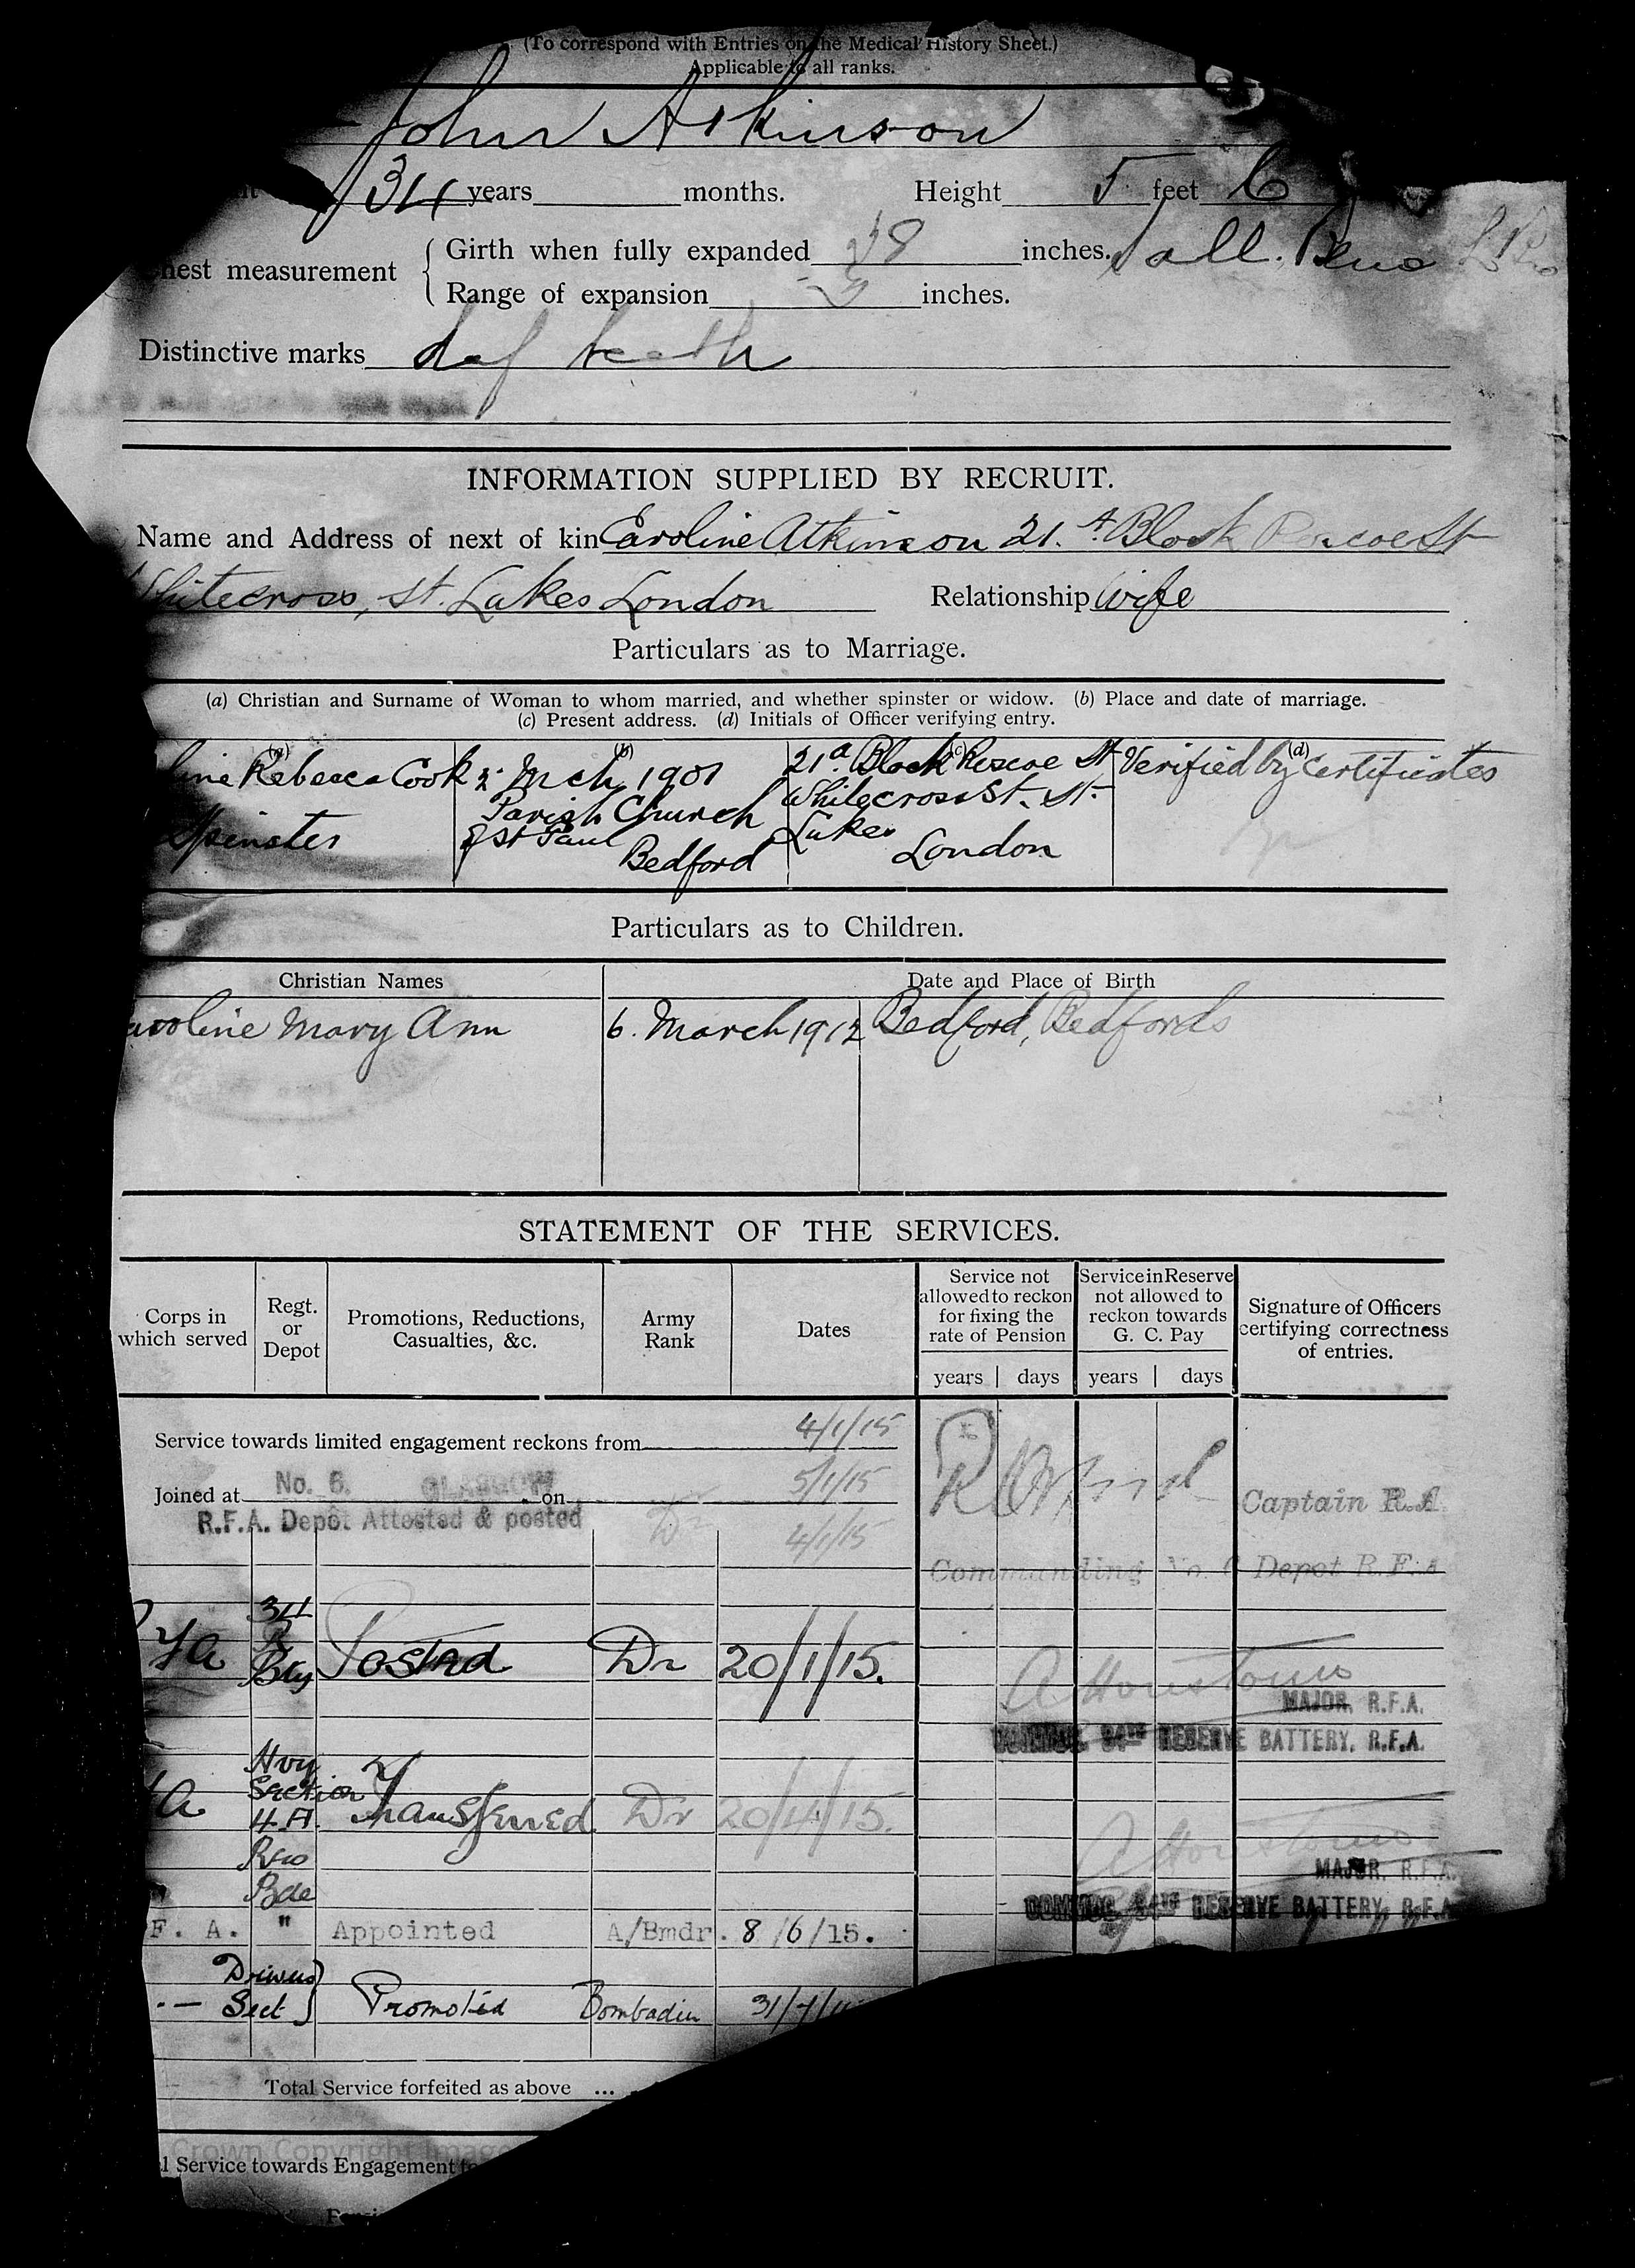 (To correspond with Entries on the Medical History Sheet.)
Applicable to all ranks.
John Atkinson
34 years months. Height 5 feet 6
Girth when fully expanded 38 inches.
hest measurement
Range of expansion 3 inches.
Distinctive marks def teeth
INFORMATION SUPPLIED BY RECRUIT.
Name and Address of next of kin Caroline Atkinson 21. A Block Roscoe St
Whitecross, St. Lukes London Relationship Wife
Particulars as to Marriage.
(a) Christian and Surname of Woman to whom married, and whether spinster or widow. (b) Place and date of marriage.
(c) Present address. (d) Initials of Officer verifying entry.
(a) (b) (c) (d)
line Rebecca Cook 2. Mch 1901 21a. Block Roscoe St Verified by Certificates
Parish Church Whitecross St. St.
Spinster of St Paul Lukes
Bedford London
Particulars as to Children.
Christian Names Date and Place of Birth
aroline Mary Ann 6. March 1912 Bedford, Bedfords
STATEMENT OF THE SERVICES.
Corps in which served
Regt. or Depot
Promotions, Reductions, Casualties, &c.
Army Rank
Dates
Service not allowed to reckon for fixing the rate of Pension
years days
Service in Reserve not allowed to reckon towards G. C. Pay
years days
Signature of Officers certifying correctness of entries.
Service towards limited engagement reckons from 4/1/15
Joined at No. 6. GLASGOW on 5/1/15
R.F.A. Depôt Attested & posted Dr 4/1/15
Captain R.A.
Commanding No. 6 Depot R.F.A
34
R
FA Bty Posted Dr 20/1/15.
MAJOR, R.F.A.
COMMDG. 34TH RESERVE BATTERY, R.F.A.
Hvy
Section
A H.A. Transferred Dr 20/4/15.
Res
Bde
MAJOR, R.F.A.
COMMDG. 34TH RESERVE BATTERY, R.F.A
F. A. " Appointed A/Bmdr. 8/6/15.
Drivers
Sect Promoted Bombadier 31/7/1
Total Service forfeited as above ...
Crown Copyright Image
l Service towards Engagement to